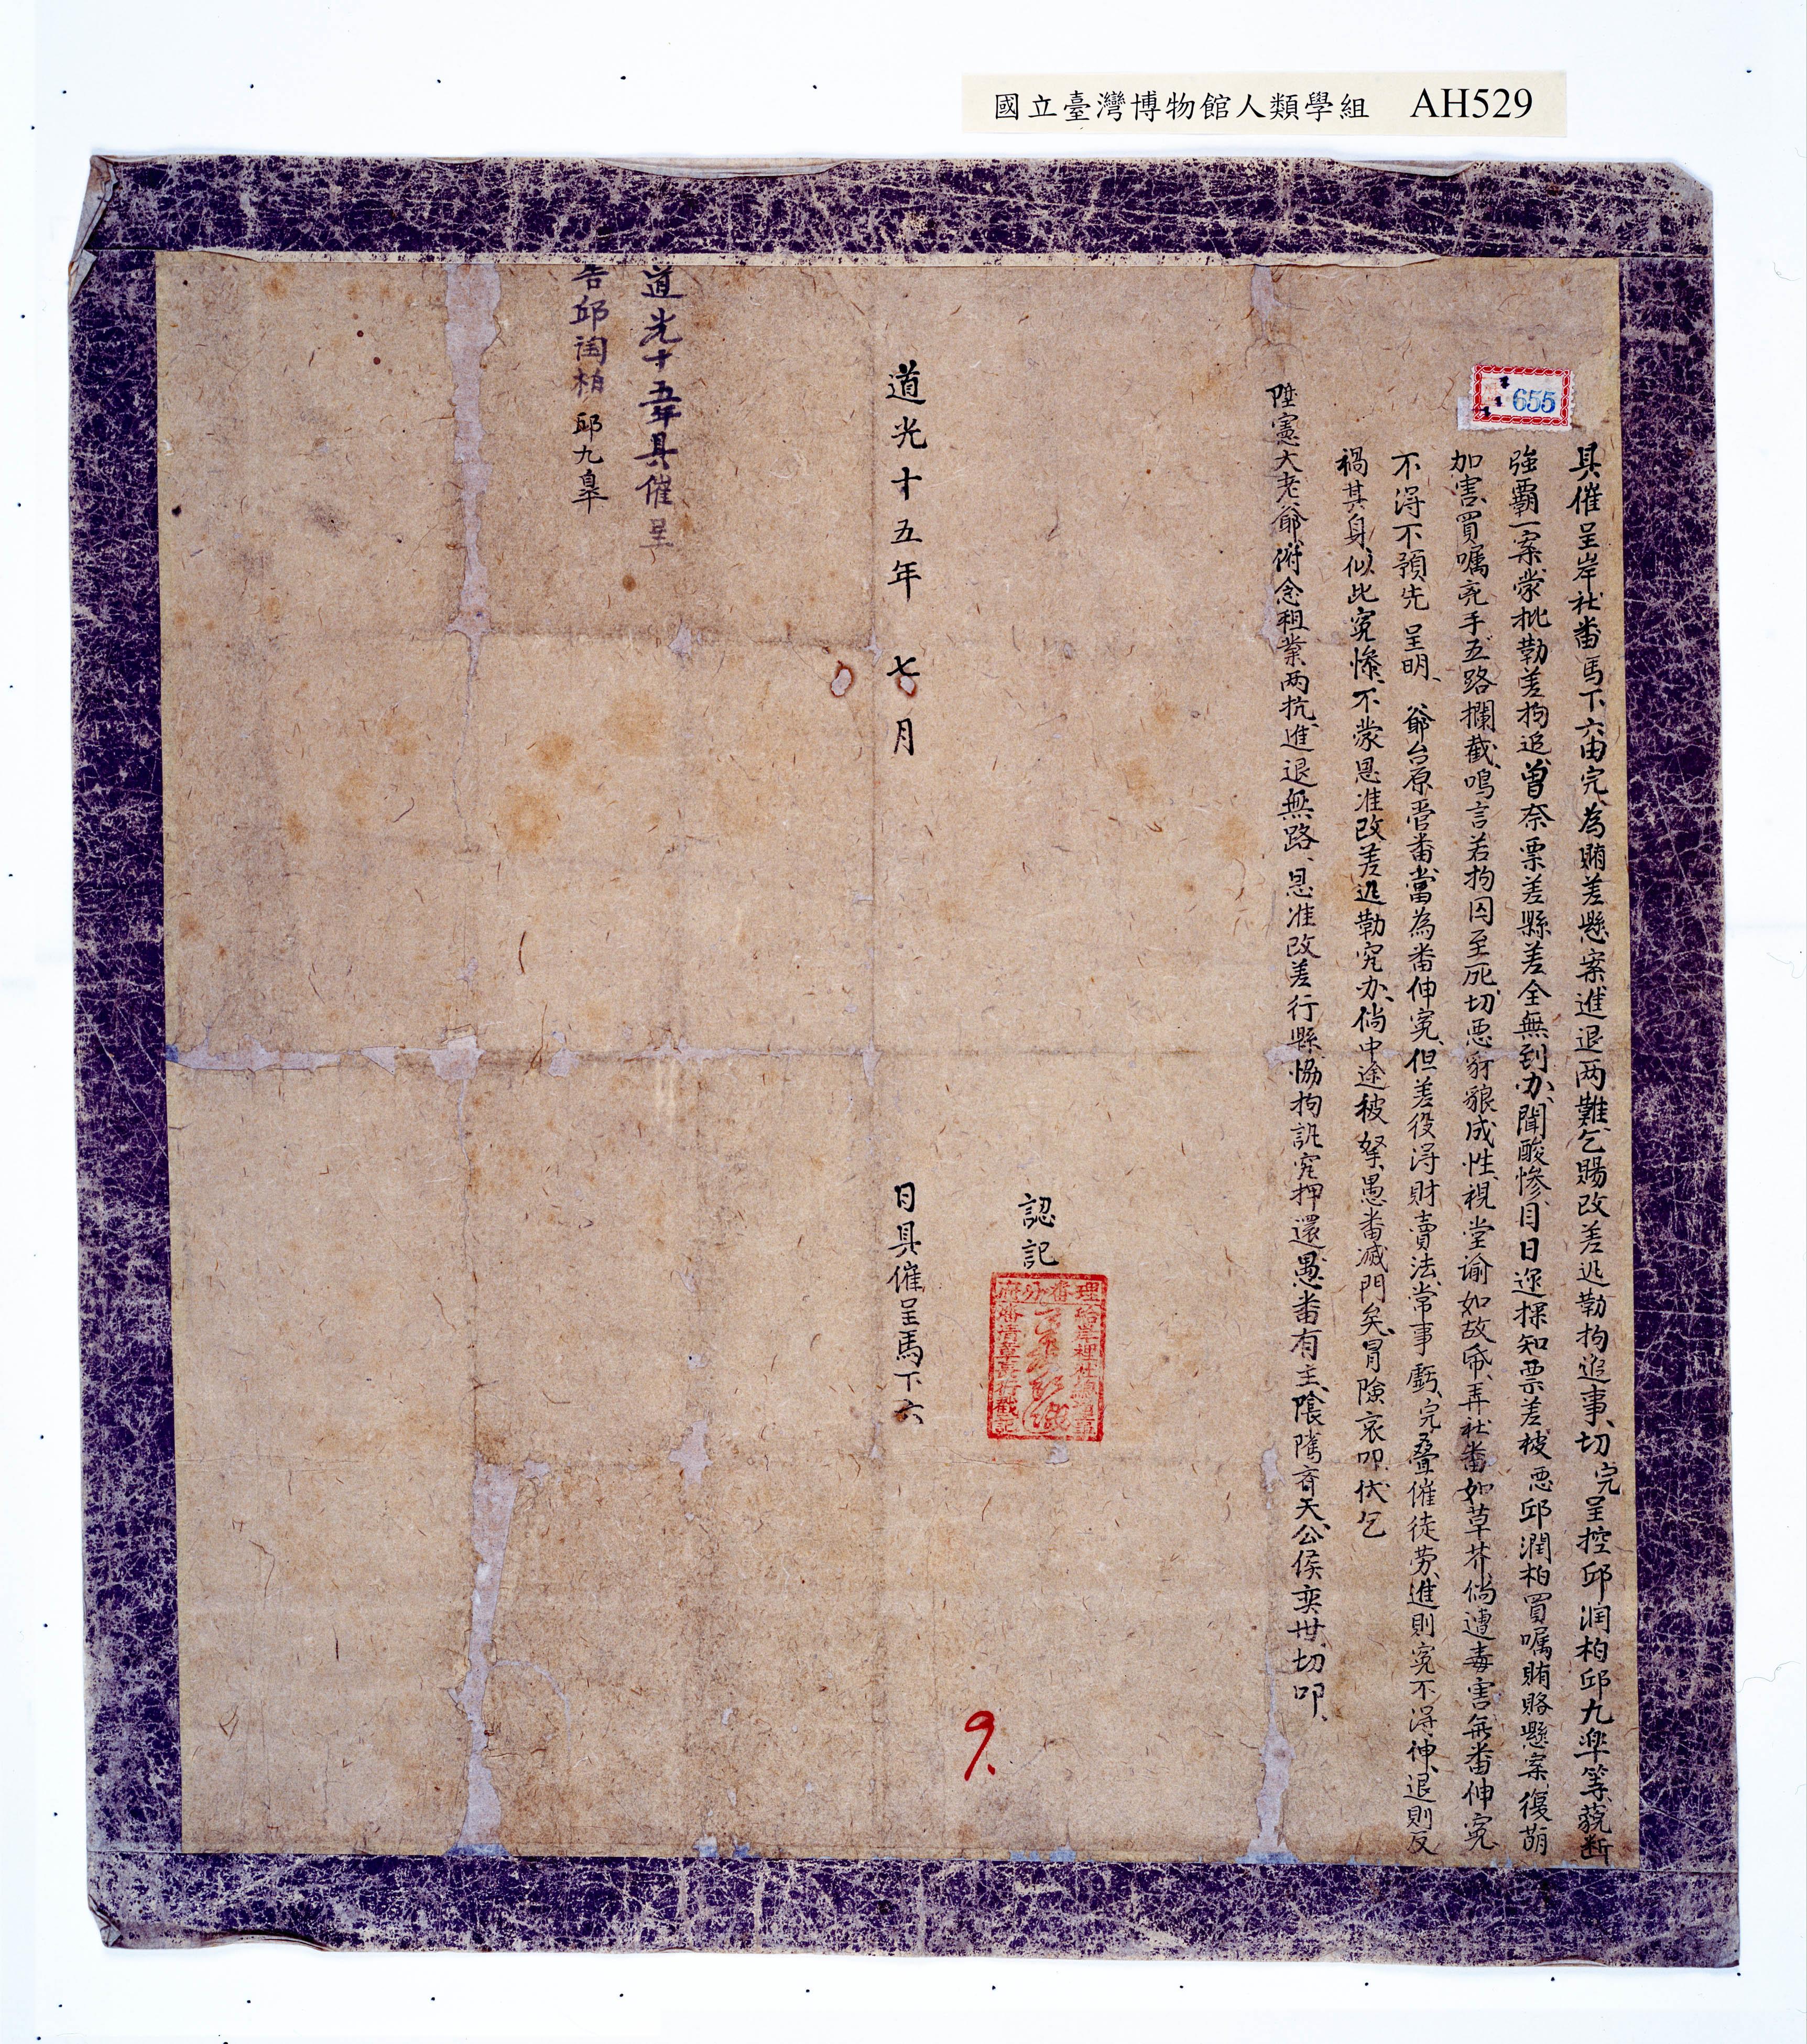 國立臺灣博物館人類學組 AH529
655
具催呈岸社番馬下六由完、為賄差懸案、進退两難、乞賜改差迅勒拘追事、切完呈控邱润柏邱九臯等藐断
強霸一案、蒙批勒差拘追、曾奈票差縣差全無到办、聞酸惨、目日遝探知票差被惡邱潤柏買嘱賄賂懸案、復萌
加害、買嘱兇手、五路攔截、鳴言若拘囚至死、切惡豺狼成性、視堂谕如故帋、再社番如草芥、倘遭毒害、無番伸寃
不得不預先呈明、爺台原管番、當為番伸寃、但差役得財賣法、常事虧、完叠催徒劳、進則寃不得伸、退則反
禍其身、似此寃慘、不蒙恩准改差迅勒究办、倘中途被拏、愚番滅門矣、冒險哀叩、伏乞
陞憲大老爺、俯念租業两抗、進退無路、恩准改差行縣協拘訊究押還、愚番有主、陰隲齊天、公侯奕世、切叩、
認記
理番分府
給岸裡社總通事
潘清章長行戳記
道光十五年 七月 日具催呈馬下六
道光十五年具催呈
告邱潤柏 邱九臯
9.